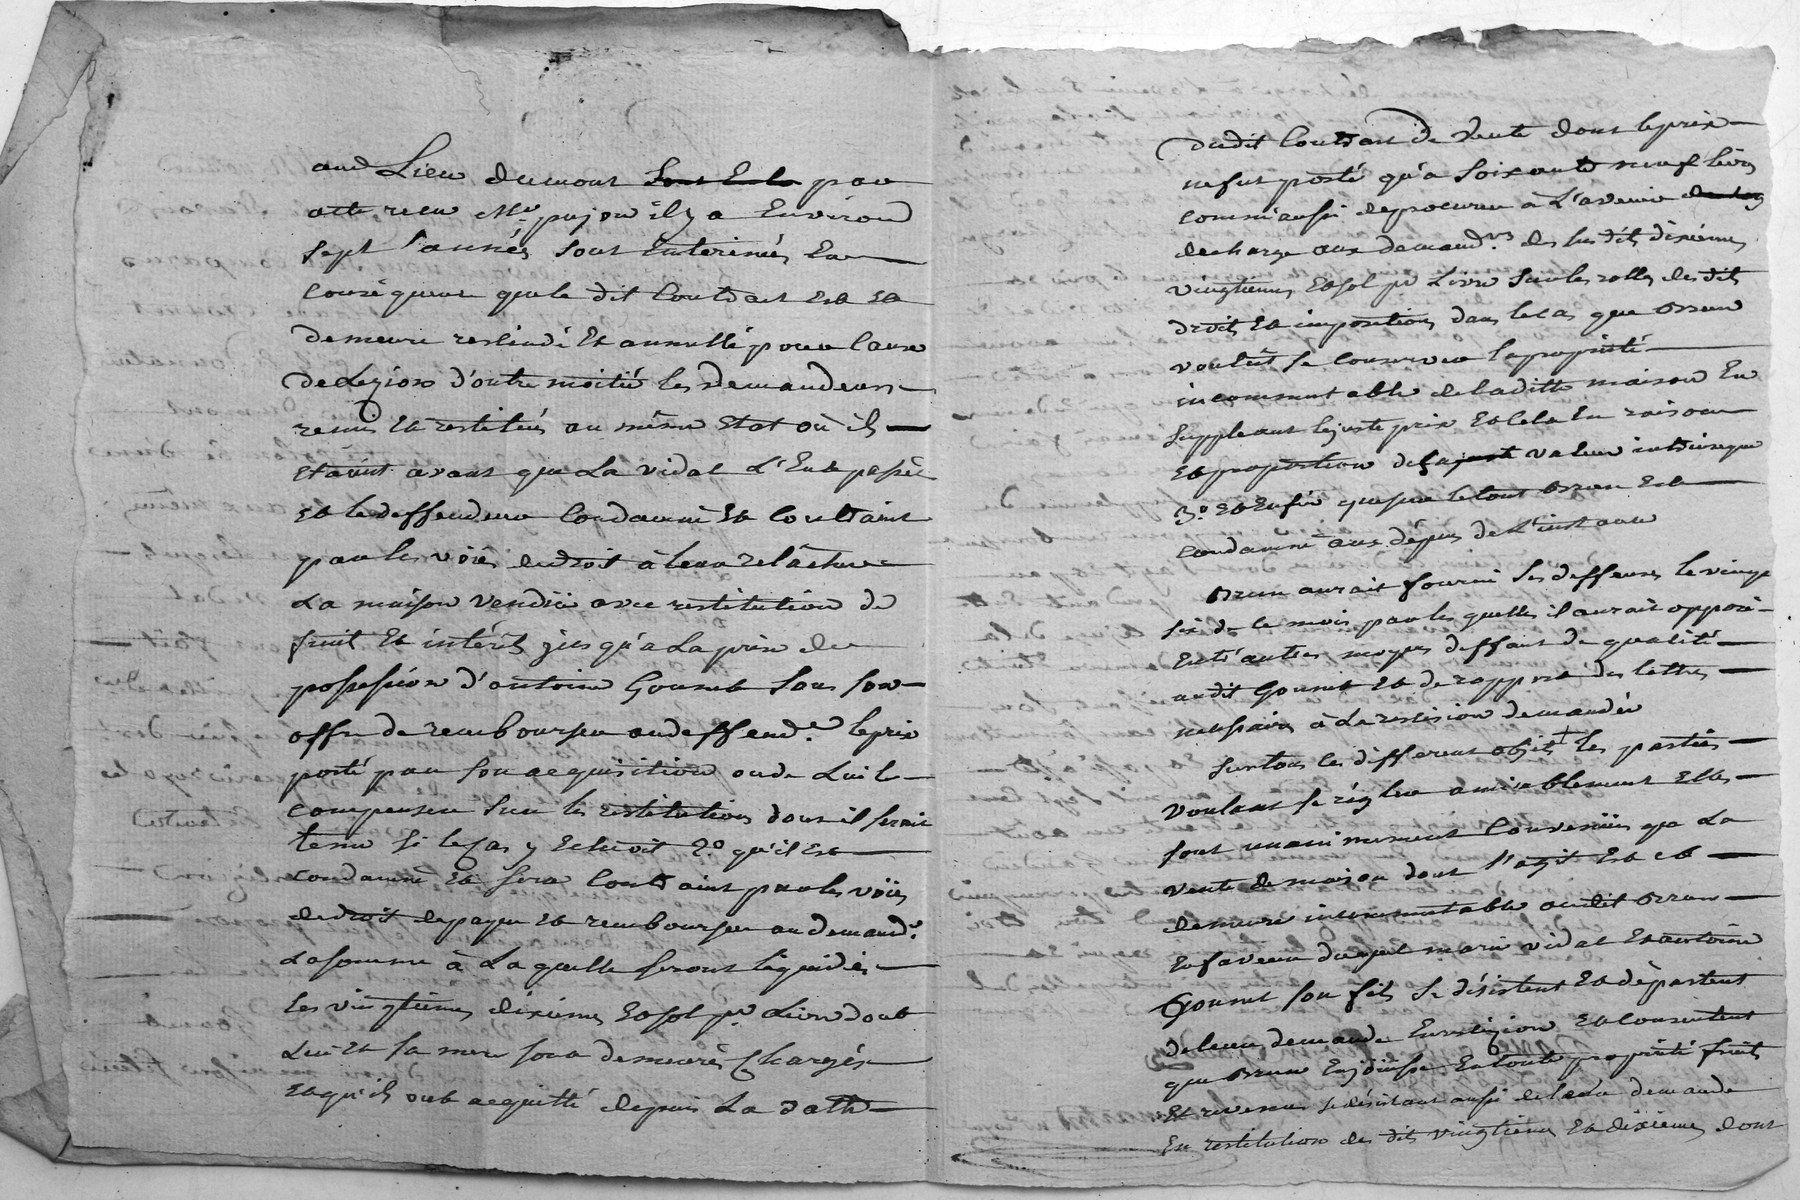 aud Lieu dumont par
acte recu Me. pujon il y a Environ
sept années sont Enterinés En
conséquence que le dit Contract Est Et
demeure rescindé Et annullé pour Cause
de Lezion d'outre moitié les Demandeurs
remis Et restitués au même Etat où ils
Etaint avant que La vidal L'Eut passée
Et le deffendeur Condamné Et Contraint
par les voies de droit à leur relâcher
La maison Vendue avec restitution de
fruit Et intérêts jusqu'à La prise de
possession d'antoine Gounet sous son
offre de rembourser au deffend.r le prix
porté par son acquisition ou de Lui le
compenser sur les restitutions dont il serait
tenu si le Cas y Echeoit 2.º qu'il Est
condamné Et sera Contraint par les voies
de droit de payer Et rembourser au demand.r
La somme à La quelle seront liquidés
les vingtiemes dixiemes Et sol p.r Livre dont
Lui Et sa mere sont demeurés Chargés
Et qu'ils ont acquitté depuis La datte
dudit Contract de Vente dont le prix
ne fut porté qu'a soixante neuf livres
comm'aussi de procurer à L'avenir
decharge aux demand.rs des susdits dixiemes
vingtiemes Et sol p.r Livre sur les rolles des dits
droits Et impositions dans le cas que Brun
voulût se Conserver la propriété
incommutable de la ditte maison En
suppleant le juste prix Et Cela En raison
Et proportion de sa valeur intrinseque
3.º Et Enfin que pour le tout Brun Est
condamné aux dépens de L'instance
Brun aurait fourni ses deffenses le vingt
six de ce mois par les quelles il aurait opposé
Entr'autres moyens deffaut de qualité
audit Gounet Et de rapport des lettres
necessaires à La rescision demandée
sur tous ces differents objets + les parties
voulant se régler amiablement Elles
sont unanimement Convenües que La
vente de maison dont s'agit Est Et
demeure incommutable audit Brun
En faveur duquel marie vidal Et antoine
Gounet son fils se désistent Et départent
de leur demande En Lezion Et Consentent
que Brun En jouisse En toute propriété fruits
Et revenus se désistant aussi de leur demande
En restitution des dits vingtiemes Et dixiemes dont